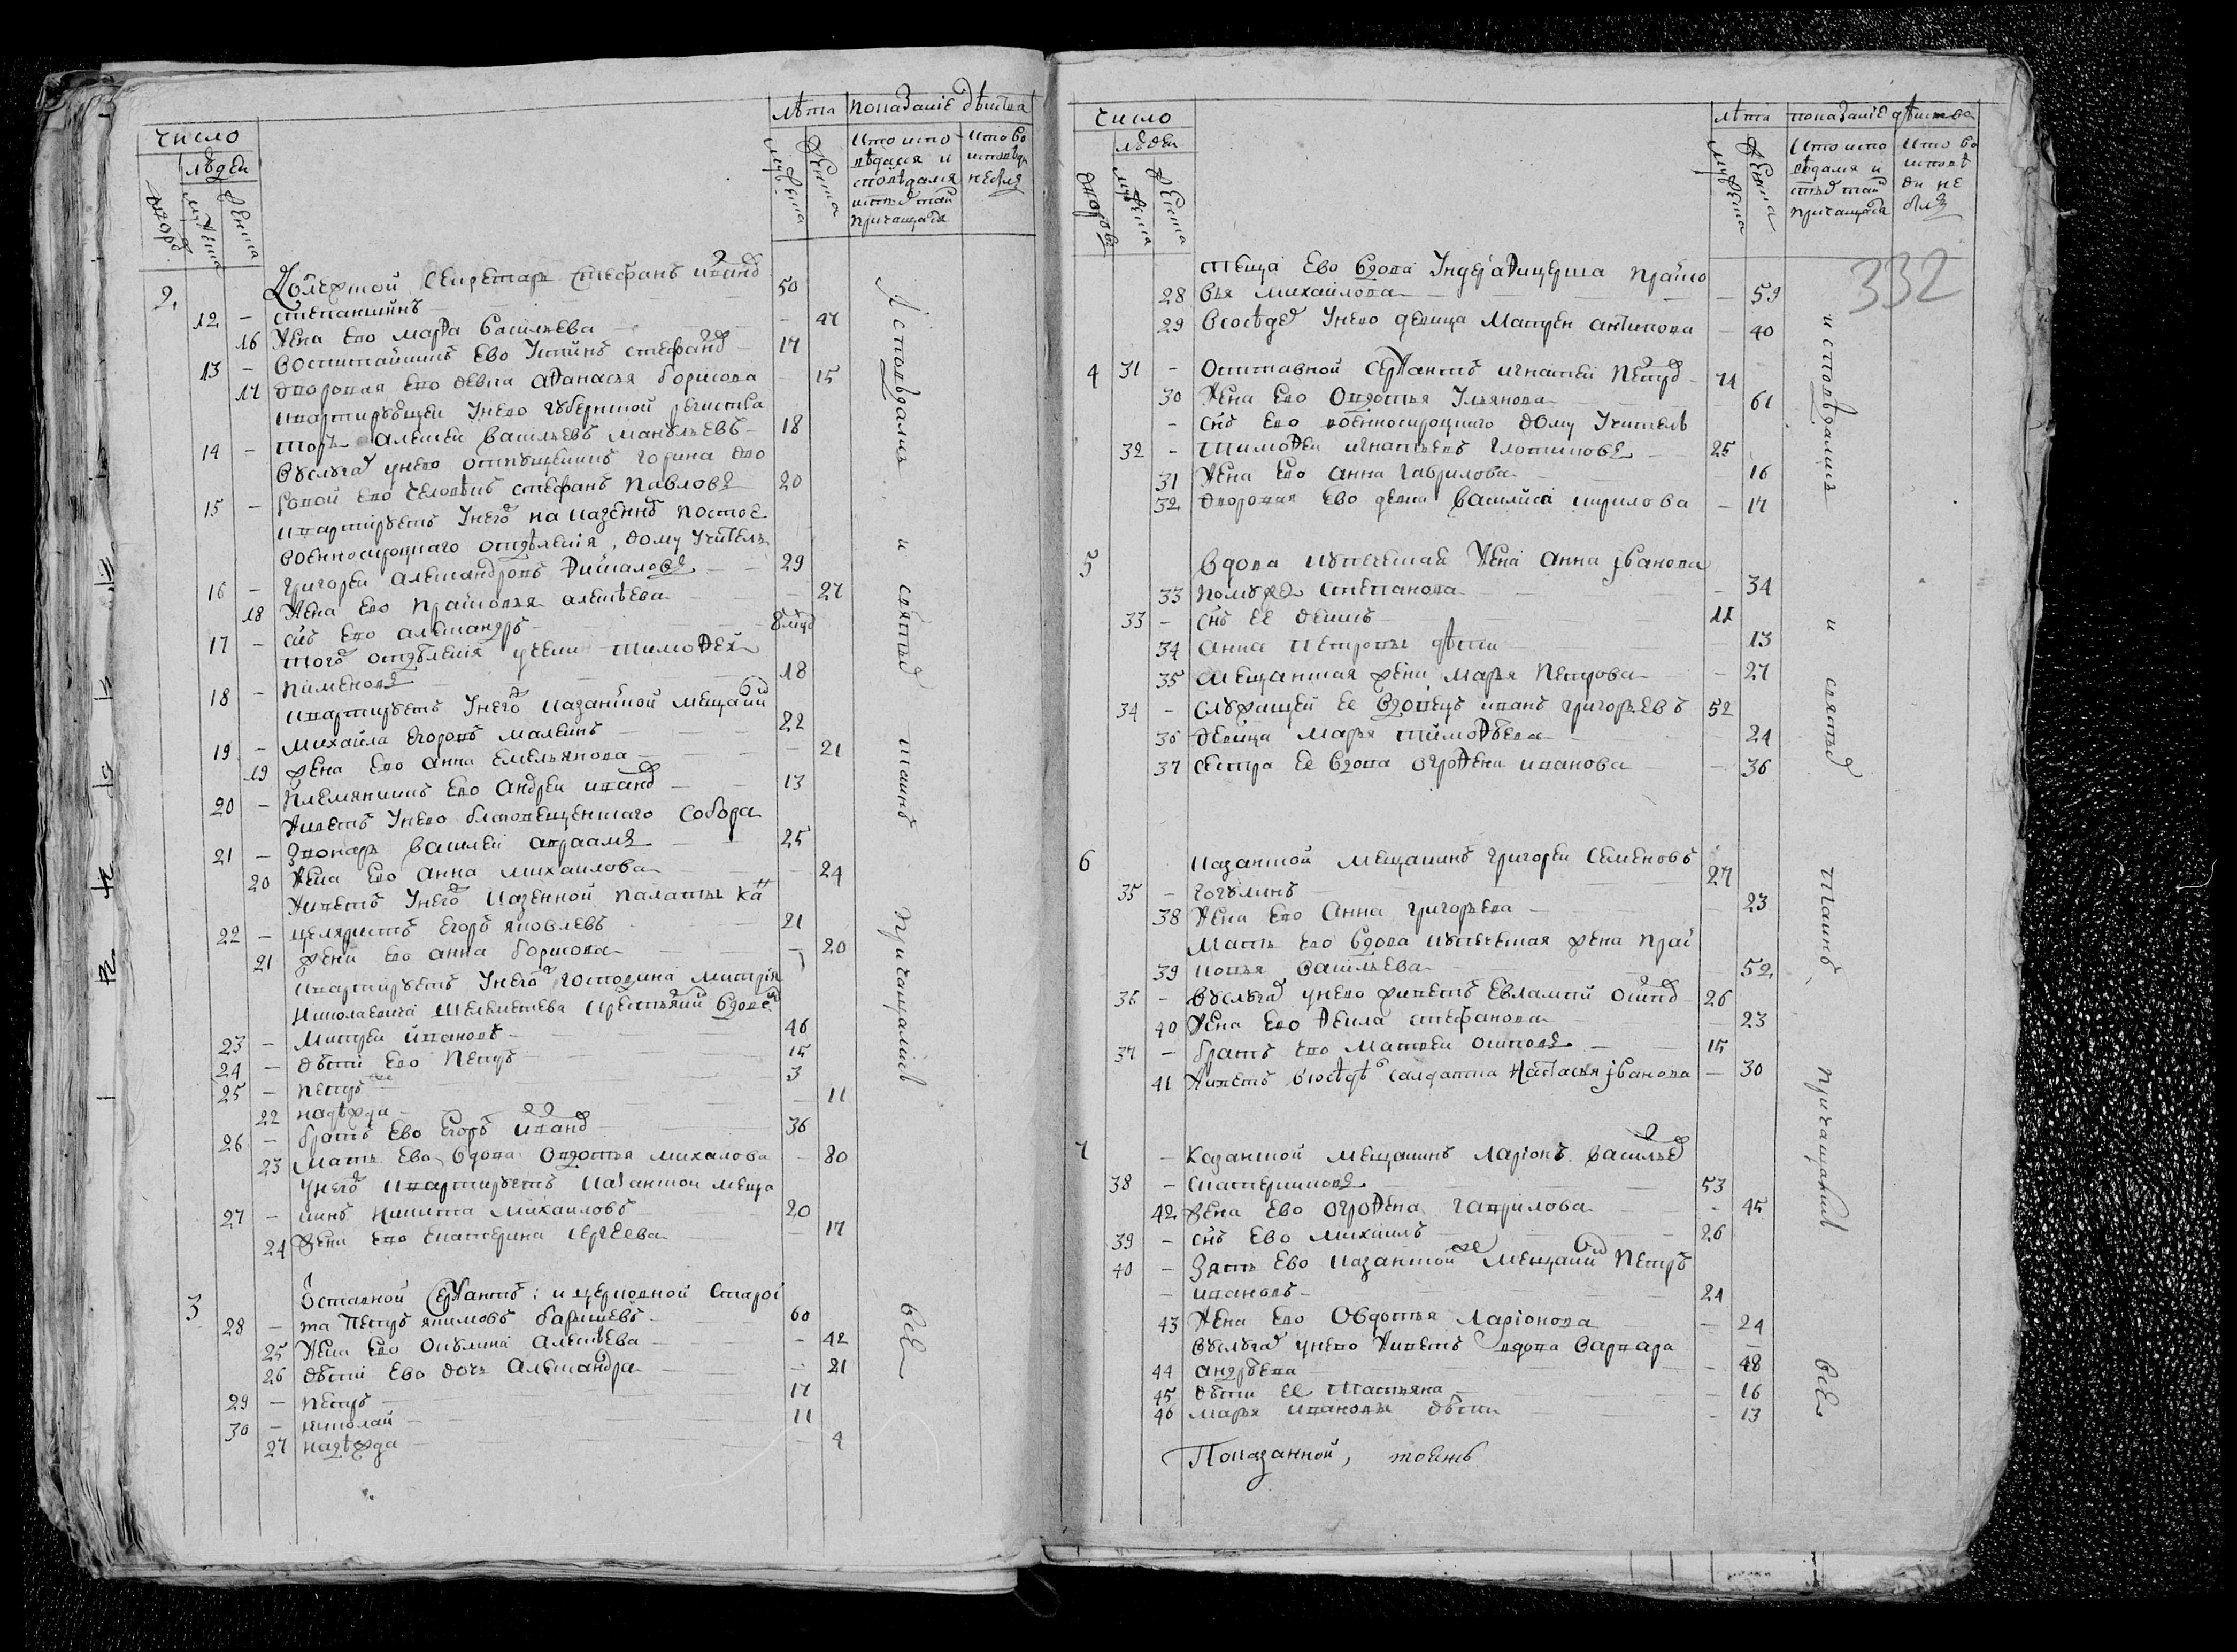 число
людеи
дворов
мужеска
женска
лѣта
показание дѣиства
мужеска
женска
кто испо
вѣдался и
святых таин
причащался
кто во
исповѣди
не был
2.
12 - Колежской Секретарь Стефанъ Иванов
Степанишинъ 50
16 Жена ево Марѳа Васильева - 47
13 - Воспитанникъ ево Устинъ Стефанов 17
17 Дворовая ево девка Аѳанасья Борисова 15
квартирующеи у нево губернской регистра
14 - торъ Алексеи Васильевъ Мануильевъ 18
В услугах у нево
15 - человѣкъ Стефанъ Павловъ 20
квартируетъ у него на казенном постое
военносиротцкаго отдѣления, дому учитель
16 - Григореи Александровъ 29
18 Жена ево Прасковья Алексѣева - 27
17 - сынъ ево Александръ 8 мцов
того отдѣления ученик Тимоѳеи
18 - Пименовъ 18
квартируетъ у него казанской мещанин
19 - Михаила Егоровъ Малкинъ 22
19 жена ево Анна Емельянова 21
20 - Племянникъ ево Андреи Иванов 13
Живетъ у нево благовещенскаго Собора
21 - Звонарь Василеи Авраамов 25
20 Жена ево Анна Михаилова - 24
Живетъ у него казенной палаты кан
22 - целяристъ Егоръ Яковлевъ 21
21 жена ево Анна Борисова - 20
квартируетъ у него господина Митрия
Николаевича крестьянин вдовец
23 - Митреи Ивановъ 46
24 - дѣти ево Петръ 15
25 - Петръ же 3
22 надѣжда - 11
26 - братъ ево Егоръ Иванов 36
23 Мать ево вдова Овдотья Михалова - 80
у него квартируетъ казанской меща
27 - нинъ Никита Михаиловъ 20
24 жена ево Екатерина Сергеева - 17
3 Оставной Сержантъ: и церковной старос
28 - та Петръ Якимовъ Барышевъ 60
25 Жена ево Окулина Алексѣева - 42
26 дѣти ево дочь Александра - 21
29 - Петръ 17
30 - николаи 11
27 надѣжда - 4
Исповѣдались и святых таинъ причащались всѣ
число
людеи
дворовъ
мужеска
женска
лѣта
показание дѣиства
мужеска
женска
кто испо
вѣдался и
святых таин
причащался
кто во
исповѣ
ди не
был
332
теща ево вдова Праско
28 вья Михаилова - 59
29 В сосѣдех у нево девица Матрен Антипова - 40
4 31 - Отставной Сержантъ Игнатеи Петров 74
30 Жена ево Овдотья Ульянова 61
- снъ ево военносироцкаго дому учитель
32 - Тимоѳеи Игнатьевъ 25
31 Жена ево Анна Гаврилова 16
32 Дворовая ево девка Василиса Кирилова - 17
5 Вдова купеческая Жена Анна Иванова
33 по мужѣ Степанова - 34
33 - снъ ее Денисъ 11
34 Анна Петровы дѣти 13
35 Мещанская жена Марья Петрова - 27
34 - служащеи ее вдовецъ Иванъ Григорьевъ 52
36 девица Марья Тимоѳѣева 24
37 сестра ее вдова Огроѳена Иванова - 36
6 казанской мещанинъ Григореи Семеновъ
35 - Гогулинъ 27
38 Жена ево Анна Григорьева 23
Мать ево вдова купеческая жена Прас
39 ковья Васильева 52
36 - В услугах у нево живетъ Евлампи Осипов 26
40 Жена ево Ѳекла Стефанова - 23
37 - братъ ево Матвеи Осиповъ 15
41 Живетъ в сосѣдѣ солдатка Настасья Иванова - 30
7 - Казанской мещанинъ Ларионъ Васильев
38 - Скатерниковъ 53
42 жена ево Огроѳена Гаврилова - 45
39 - снъ ево Михаилъ 26
40 - Зять ево казанской же мещанин Петръ
- Ивановъ 24
43 Жена ево Овдотья Ларионова - 24
В услугах у нево живетъ вдова Варвара
44 Андрѣева - 48
45 дѣти ее Татьяна - 16
46 Марья Ивановы дѣти - 13
исповѣдались и святых таинъ причащались всѣ